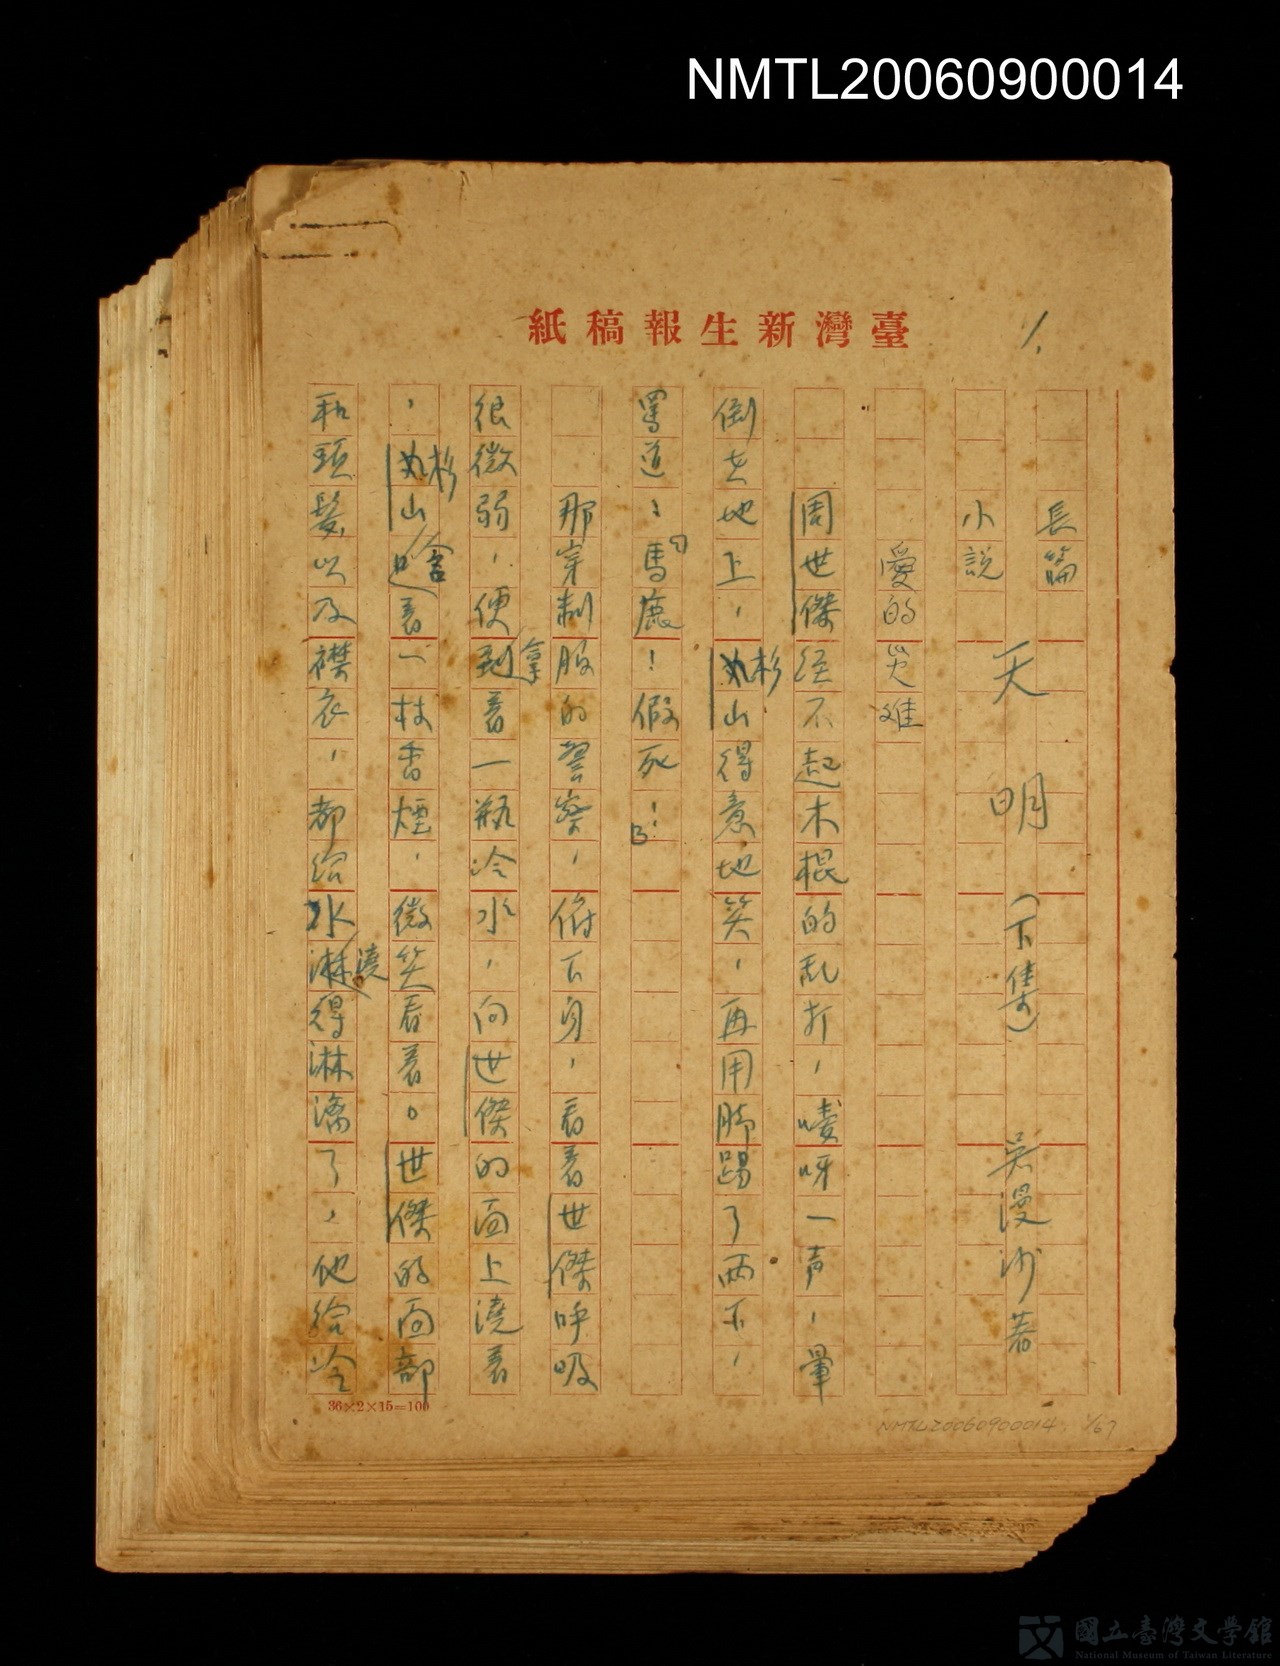 NMTL20060900014
紙稿報生新灣臺
1.
長篇
小説
天明（下集） 吳漫沙著
愛的災难
周世傑經不起木棍的乱打，嗳呀一声，暈
倒在地上，杉山得意地笑，再用脚踢了兩下，
罵道：「馬鹿！假死！」
那穿制服的警察，俯下身，看着世傑呼吸
很微弱，便拿着一瓶冷水，向世傑的面上澆着
，杉山含着一枝香煙，微笑看着。世傑的面部
和頭髮以及襟衣，都给水澆得淋漓了，他给冷
36×2×15=100
NMTL20060900014 1/67
國立臺灣文學館
National Museum of Taiwan Literature